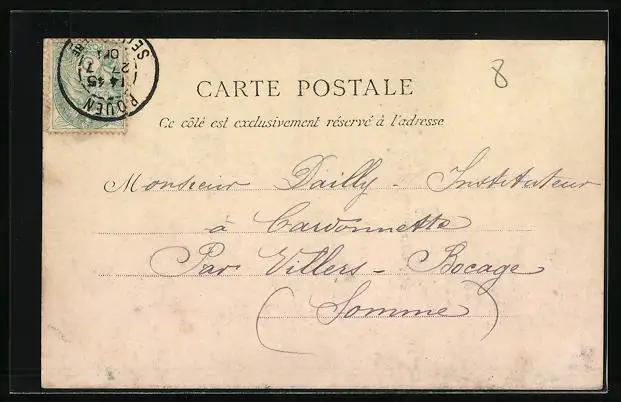 8
CARTE POSTALE
Ce côté est exclusivement réservé à l'adresse
ROUEN
14 45
27
Monsieur Dailly - Instituteur
à Cardonnette
Par Villers - Bocage
(Somme)